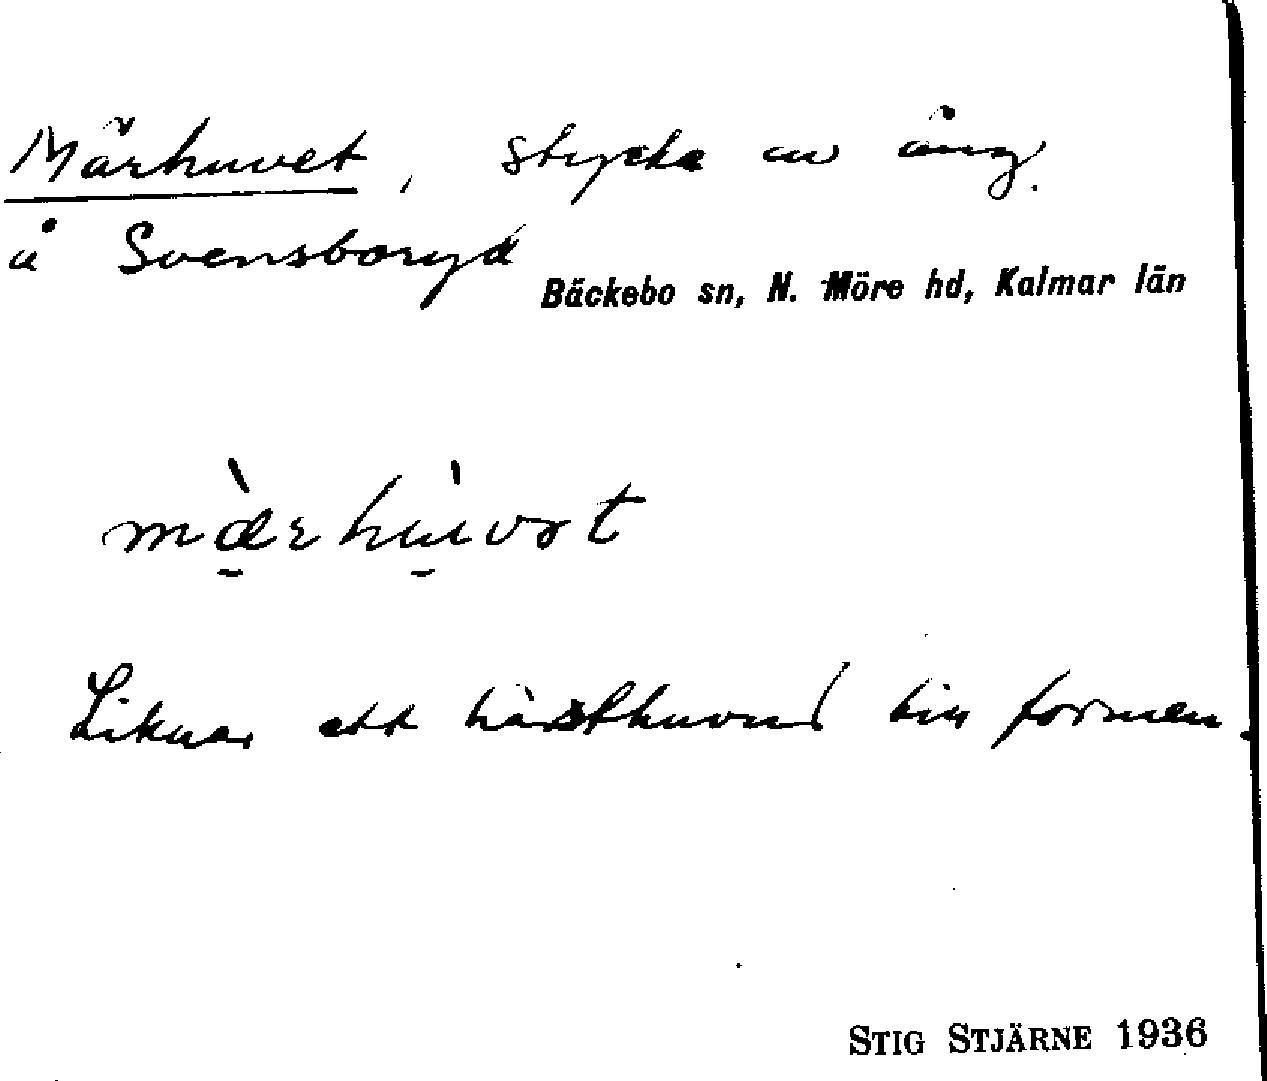 Märhuvet, stycke av äng.
å Svensboryd
Bäckebo sn, N. Möre hd, Kalmar län
mæ̀rhùvət
Liknar ett hästhuvud till formen.
STIG STJÄRNE 1936